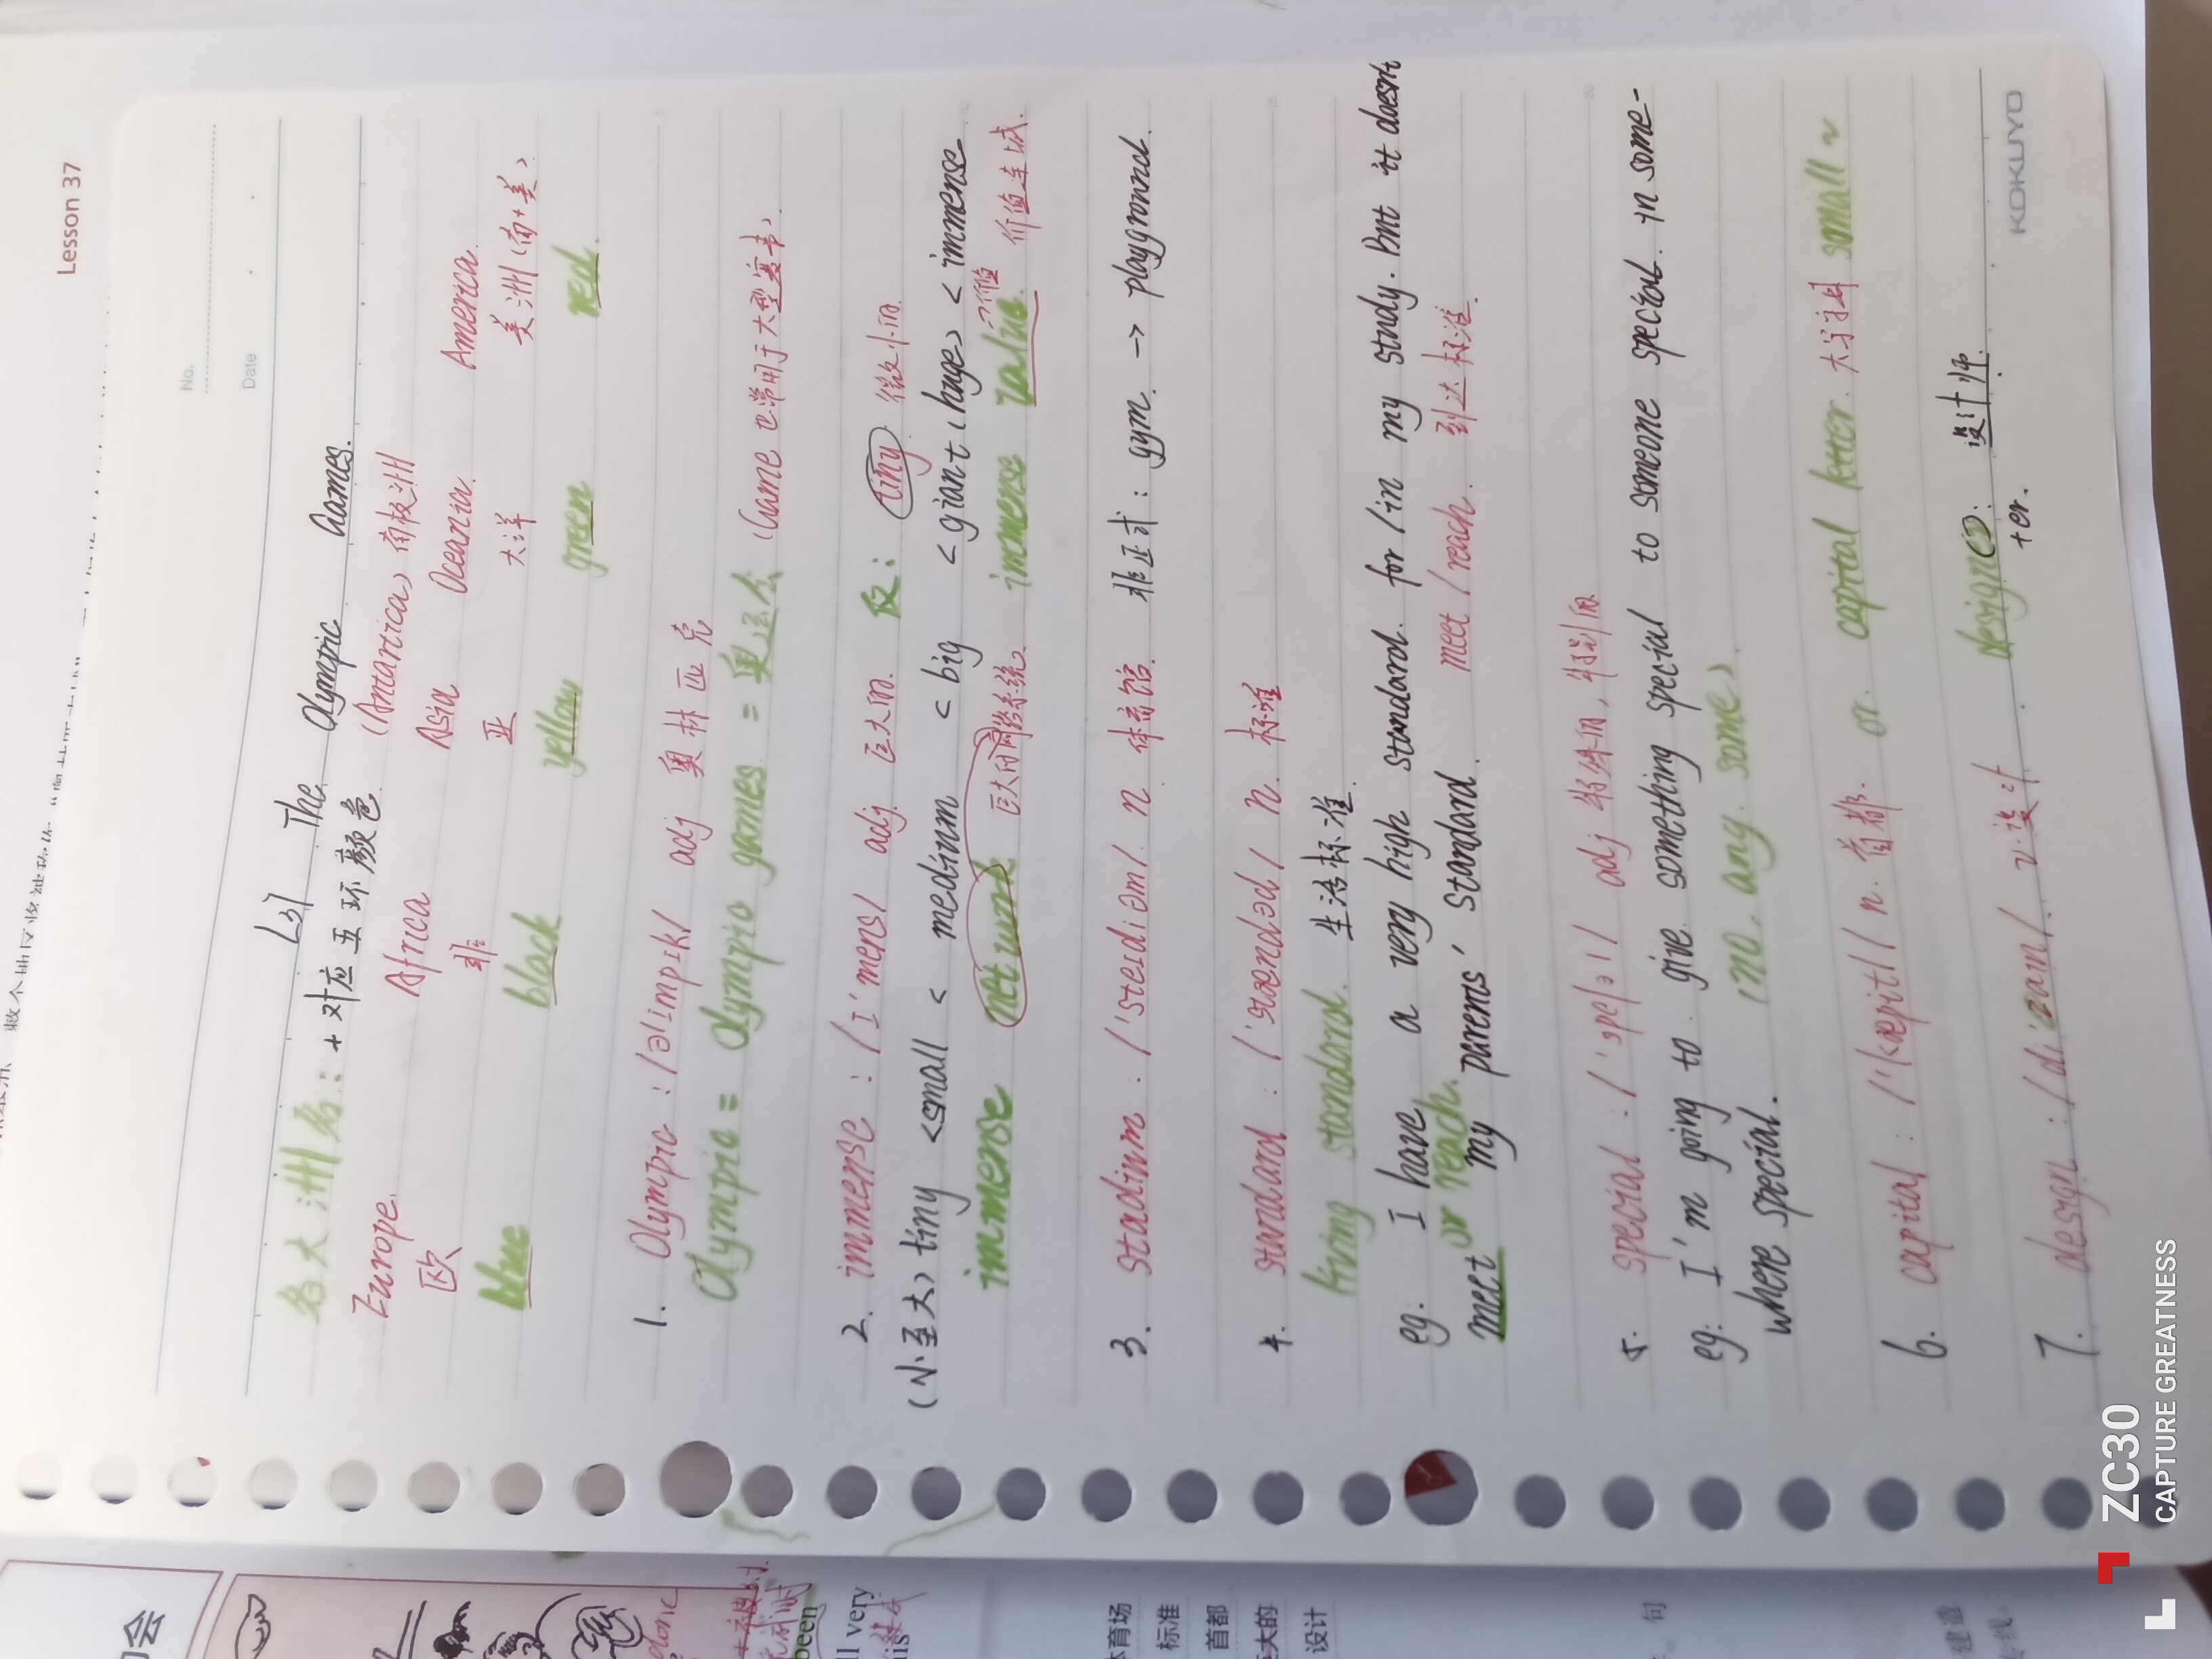 Lesson 37
No.
Date
L37 The Olympic Games.
各大洲名: + 对应五环颜色
(Antartica) 南极洲
Europe. Africa Asia Oceania. America.
欧 非 亚 大洋 美洲(南+美)
blue black yellow green red.
1. Olympic : /əlimpɪk/ adj 奥林匹克
Olympic = Olympic games = 奥运会 (Game 也常用于大型赛事)
2. immense : /ɪ'mens/ adj. 巨大的. 反: tiny 微小的
(小至大) tiny < small < medium < big < giant (huge) < immense
immense network 巨大的网路系统. immense value. →价值 价值连城.
3. stadium : /'steidiəm/ n 体育馆. 非正式: gym. → playground.
4. standard : /'stændəd/ n. 标准
living standard. 生活标准.
eg. I have a very high standard. for/in my study. But it doesn't
meet or reach. my parents' standard. meet / reach. 到达标准.
5. special : /'speʃəl/ adj 特殊的, 特别的
eg: I'm going to give something special to someone special. in some-
where special. (no. any. some)
6. capital : /'kæpitl/ n. 首都. or. capital letter. 大写字母 small ~
7. design : /di'zain/. v. 设计. designer: 设计师.
+er.
KOKUYO
been
ll very
体育场
标准
首都
巨大的
设计
句
建造
ZC30
CAPTURE GREATNESS